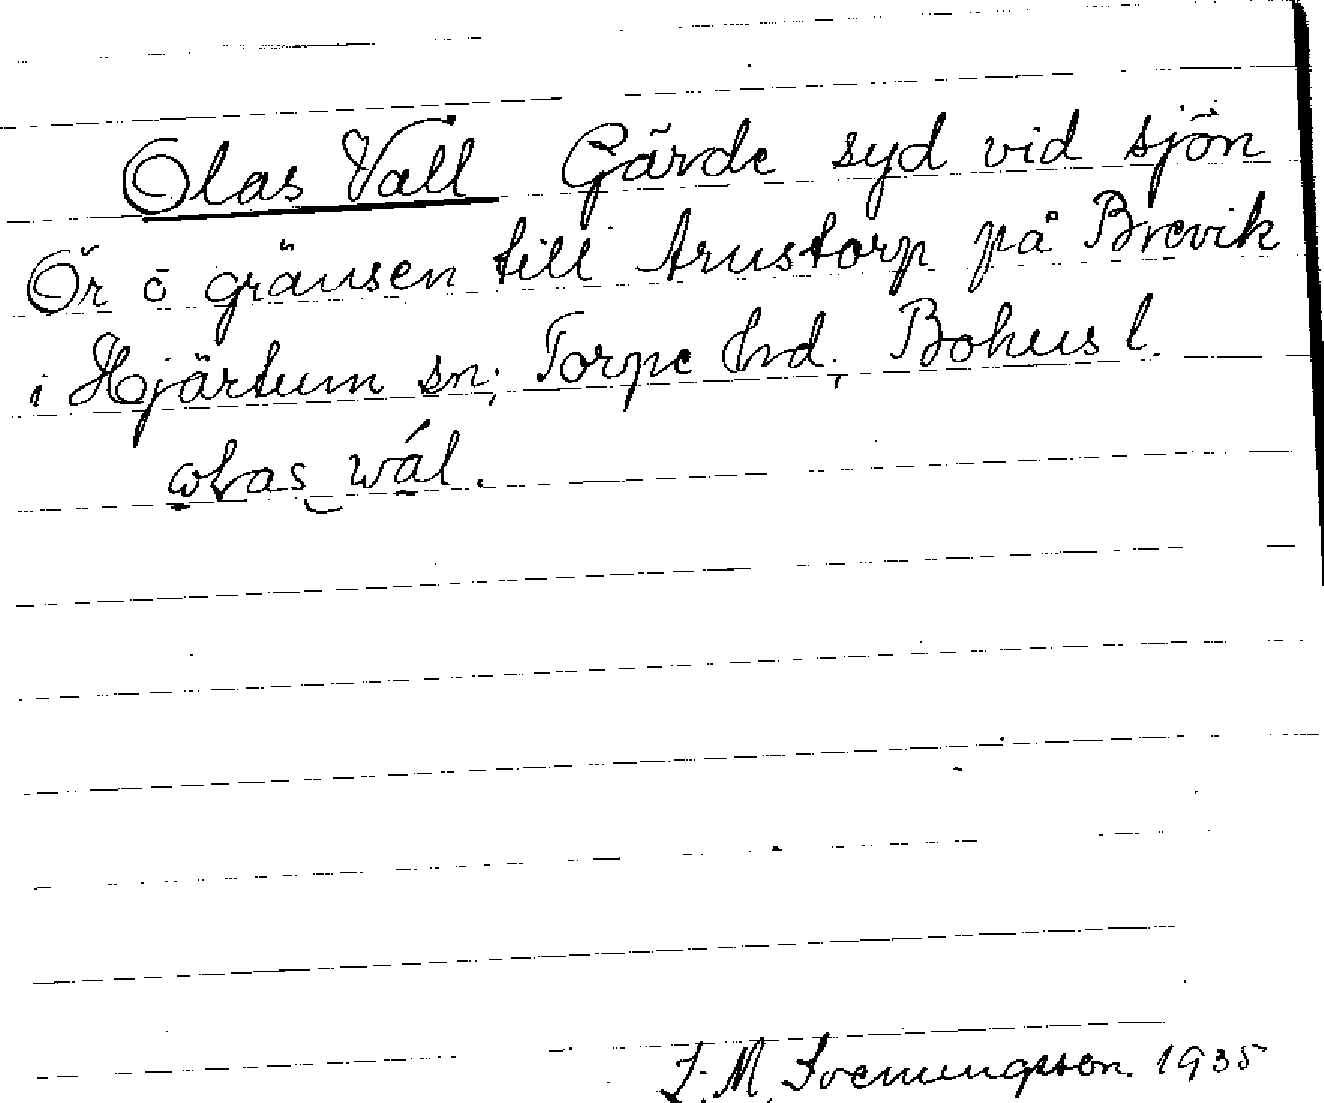 Olas Vall Gärde syd vid sjön
Ör ō gränsen till Arustorp på Brevik
i Hjärtum sn; Torpe hrd; Bohus l.
wlas wál.
J. M. Svenungsson. 1935